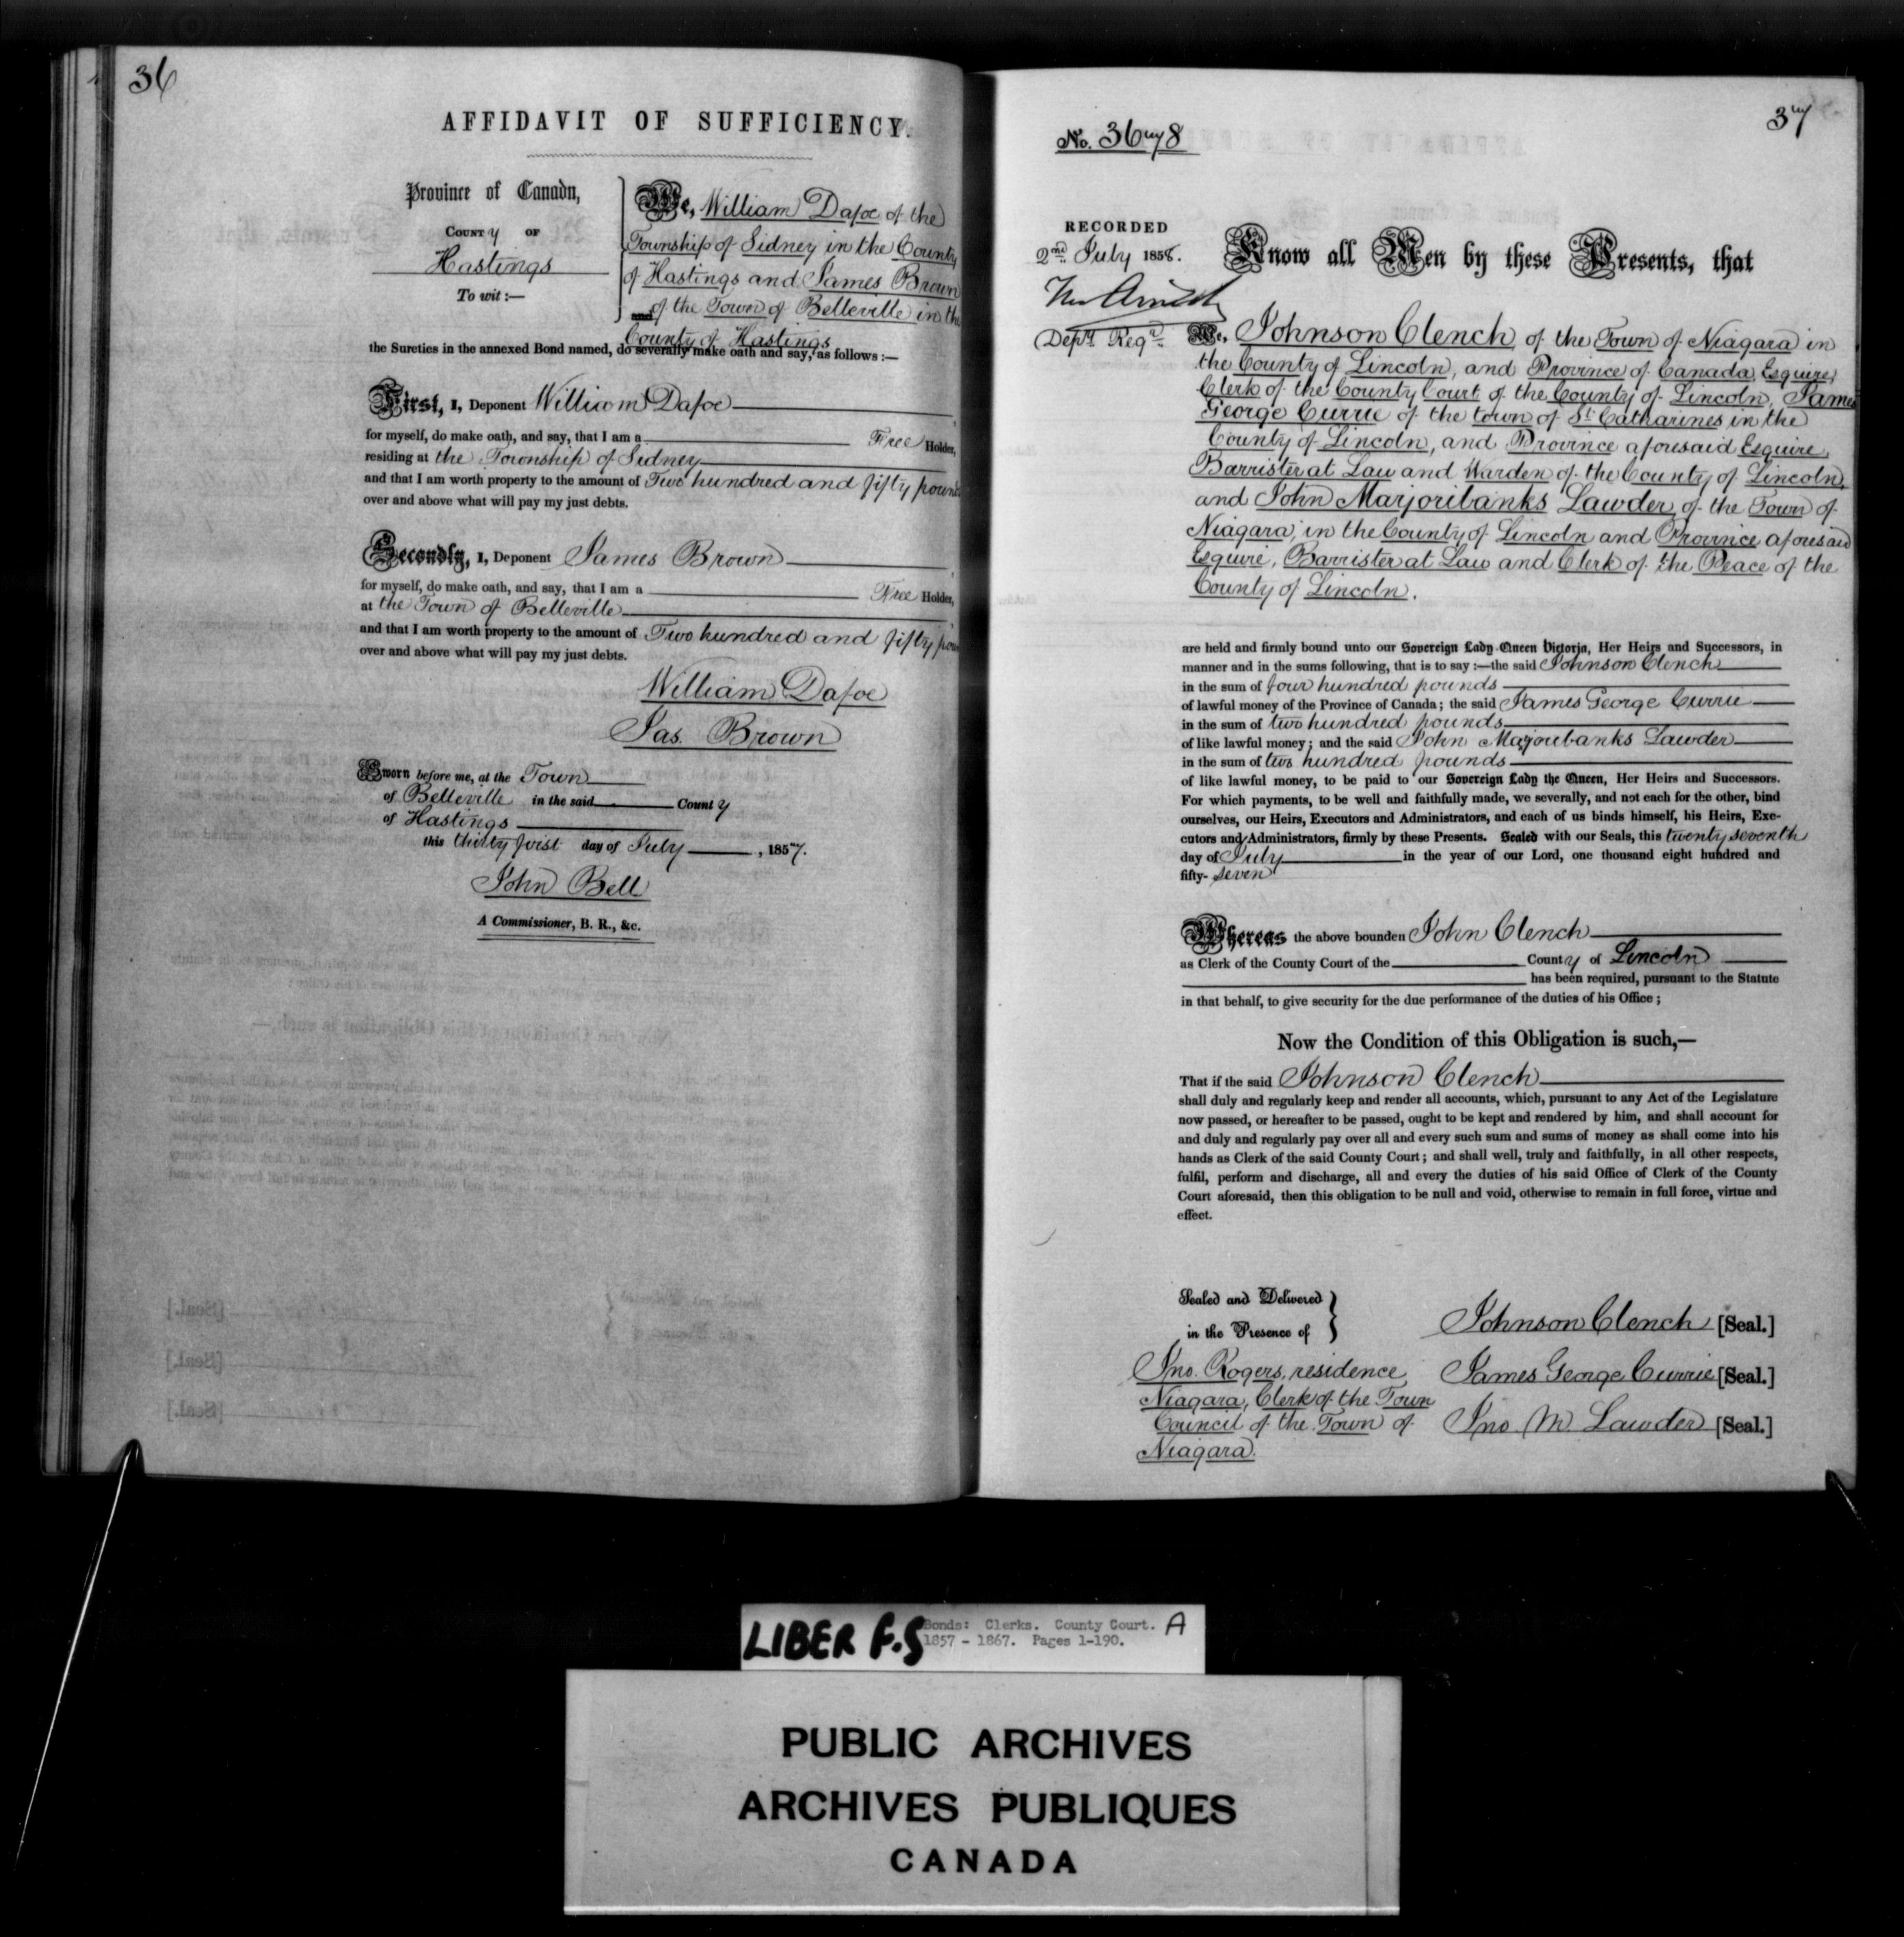 36
AFFIDAVIT OF SUFFICIENCY.
Province of Canada,
County of
Hastings
To wit:—
We, William Dafoe of the
Township of Sidney in the County
of Hastings and James Brown
of the Town of Belleville in the
County of Hastings
the Sureties in the annexed Bond named, do severally make oath and say, as follows:—
First, I, Deponent William Dafoe
for myself, do make oath, and say, that I am a Free Holder,
residing at the Township of Sidney
and that I am worth property to the amount of Two hundred and fifty pounds
over and above what will pay my just debts.
Secondly, I, Deponent James Brown
for myself, do make oath, and say, that I am a Free Holder,
at the Town of Belleville
and that I am worth property to the amount of Two hundred and fifty
over and above what will pay my just debts.
William Dafoe
Jas. Brown
Sworn before me, at the Town
of Belleville in the said County
of Hastings
this thirty first day of July, 1857.
John Bell
A Commissioner, B. R., &c.
37
No. 3678
RECORDED
2nd July 1858.
Depy Regr
Know all Men by these Presents, that
We, Johnson Clench of the Town of Niagara in
the County of Lincoln, and Province of Canada, Esquire,
Clerk of the County Court of the County of Lincoln, James
George Currie of the town of St Catharines in the
County of Lincoln, and Province aforesaid Esquire,
Barrister at Law and Warden of the County of Lincoln,
and John Marjoribanks Lawder of the Town of
Niagara, in the County of Lincoln and Province aforesaid
Esquire, Barrister at Law and Clerk of the Peace of the
County of Lincoln.
are held and firmly bound unto our Sovereign Lady Queen Victoria, Her Heirs and Successors, in
manner and in the sums following, that is to say:—the said Johnson Clench
in the sum of four hundred pounds
of lawful money of the Province of Canada; the said James George Currie
in the sum of two hundred pounds
of like lawful money; and the said John Majoribanks Lawder
in the sum of two hundred pounds
of like lawful money, to be paid to our Sovereign Lady the Queen, Her Heirs and Successors.
For which payments, to be well and faithfully made, we severally, and not each for the other, bind
ourselves, our Heirs, Executors and Administrators, and each of us binds himself, his Heirs, Exe-
cutors and Administrators, firmly by these Presents. Sealed with our Seals, this twenty seventh
day of July in the year of our Lord, one thousand eight hundred and
fifty-seven
Whereas the above bounden John Clench
as Clerk of the County Court of the County of Lincoln
has been required, pursuant to the Statute
in that behalf, to give security for the due performance of the duties of his Office;
Now the Condition of this Obligation is such,—
That if the said Johnson Clench
shall duly and regularly keep and render all accounts, which, pursuant to any Act of the Legislature
now passed, or hereafter to be passed, ought to be kept and rendered by him, and shall account for
and duly and regularly pay over all and every such sum and sums of money as shall come into his
hands as Clerk of the said County Court; and shall well, truly and faithfully, in all other respects,
fulfil, perform and discharge, all and every the duties of his said Office of Clerk of the County
Court aforesaid, then this obligation to be null and void, otherwise to remain in full force, virtue and
effect.
Sealed and Delivered
in the Presence of
Jno. Rogers, residence
Niagara, Clerk of the Town
Council of the Town of
Niagara.
Johnson Clench [Seal.]
James George Currie [Seal.]
Jno. M Lawder [Seal.]
LIBER F.S
Bonds: Clerks. County Court. A
1857 - 1867. Pages 1-190.
PUBLIC ARCHIVES
ARCHIVES PUBLIQUES
CANADA